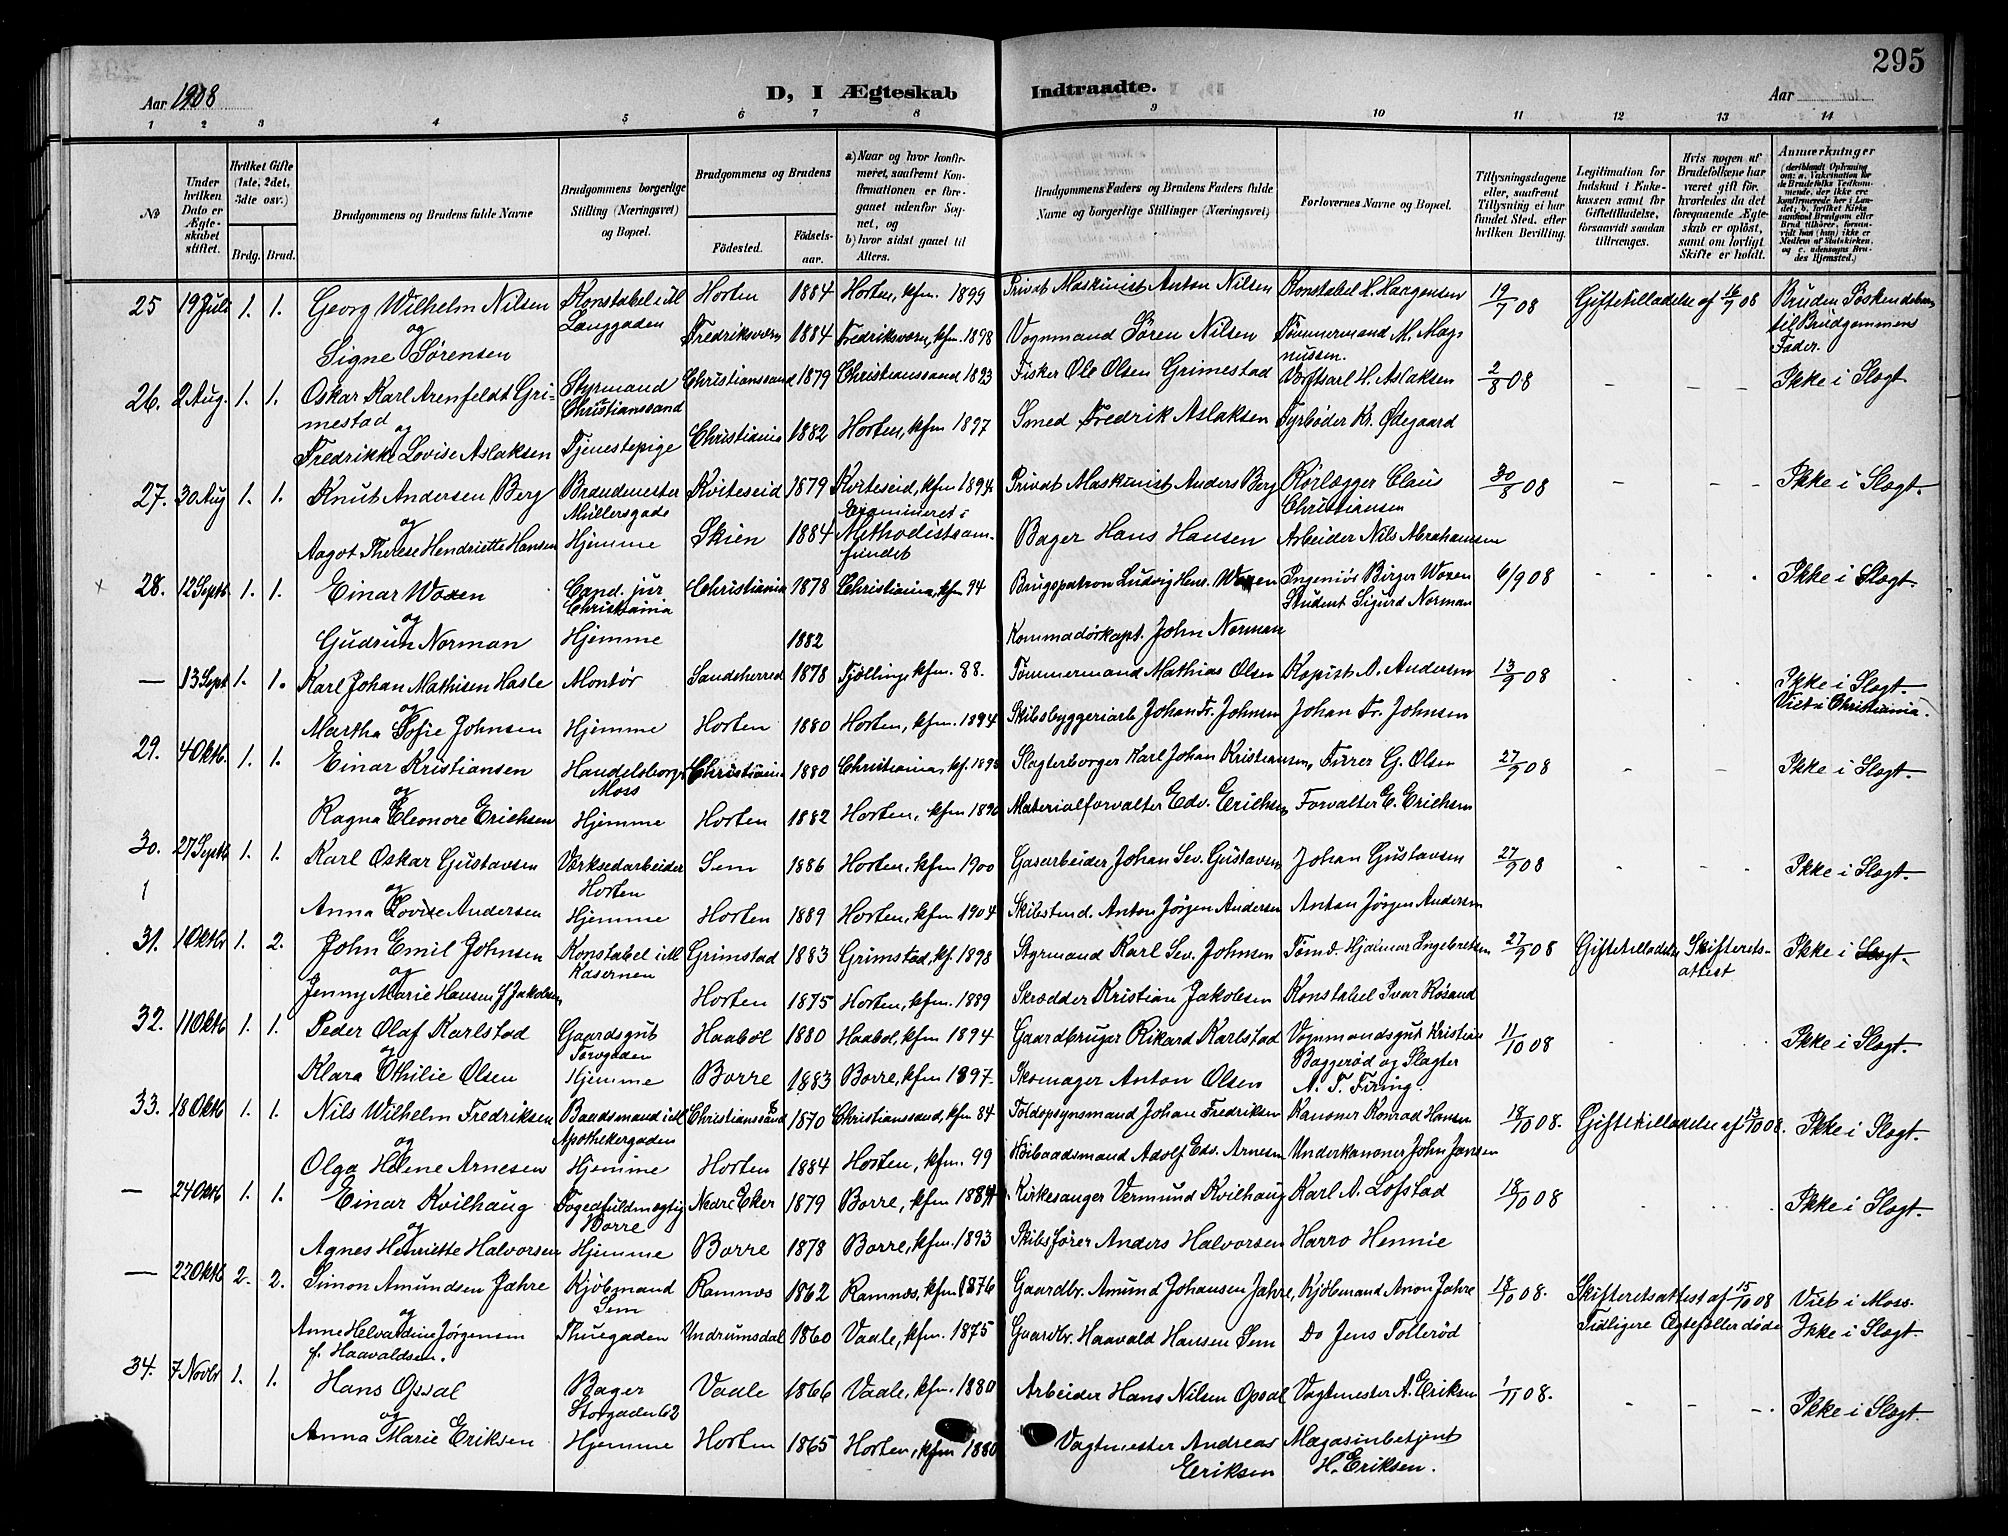 295
Aar 1908
D, I Ægteskab Indtraadte.
Aar
1 2 3 4 5 6 7 8 9 10 11 12 13 14
№
Under hvilken Dato er Ægteskabet stiftet.
Hvilket Gifte (1ste, 2det, 3die osv.)
Brdg. Brud.
Brudgommens og Brudens fulde Navne
Brudgommens borgerlige Stilling (Næringsvei) og Bopæl.
Brudgommens og Brudens
Fødested. Fødselsaar.
a) Naar og hvor konfirmeret, saafremt Konfirmationen er foregaaet udenfor Sognet, og
b) hvor sidst gaaet til Alters.
Brudgommens Faders og Brudens Faders fulde Navne og borgerlige Stillinger (Næringsvei)
Forlovernes Navne og Bopæl.
Tillysningsdagene eller, saafremt Tillysning ei har fundet Sted, efter hvilken Bevilling.
Legitimation for Indskud i Enkekassen samt for Giftetilladelse, forsaavidt saadan tiltrænges.
Hvis nogen af Brudefolkene har været gift før, hvorledes da det foregaaende Ægteskab er opløst, samt om lovligt Skifte er holdt.
Anmærkninger
25 19 Juli 1. 1. Georg Wilhelm Nilsen Konstabel i M. Horten 1884 Horten, kfm. 1899 Privat Maskinist Anton Nilsen Konstabel H. Haagensen 19/7 08 Giftetilladelse af 16/7 08 Bruden Søskendebarn
og Langgaden Fredriksværn 1884 Fredriksværn, kfm. 1898 Vognmand Søren Nilsen Tømmermand M. Mag- til Brudgommens
Signe Sørensen nussen. Fader.
26. 2 Aug. 1. 1. Oskar Karl Arenfeldt Gri- Styrmand Christianssand 1879 Christianssand 1893 Fisker Ole Olsen Grimestad Værftsarb H. Aslaksen 2/8 08 - - - Ikke i Slægt
mestad Christianssand
og Christiania 1882 Horten, kfm 1897 Smed Fredrik Aslaksen Fyrbøder K. Ødegaard
Fredrikke Lovise Aslaksen Tjenestepige
27. 30 Aug 1. 1. Knut Andersen Berg Brandmester Kviteseid 1879 Kviteseid, kfm 1894. Privat Maskinist Anders Berg Rørlægger Claus 30/8 08 - - - Ikke i Slægt.
og Müllersgade Examineret i Christiansen
Aagot Therese Hendriette Hansen Hjemme Skien 1884 Methodistsam- Bager Hans Hansen Arbeider Nils Abrahamsen
fundet
x 28. 12 Septb 1. 1. Einar Woxen Cand. jur Christiania 1878 Christiania, kfm 94 Brugspatron Ludvig Henr. Woxen Ingeniør Birger Woxen 6/9 08 - - - Ikke i Slægt.
og Christiania Student Sigurd Norman
Gudrun Norman Hjemme 1882 Kommadørkapt. John Norman
— 13 Sept 1. 1. Karl Johan Mathisen Hasle Montør Sandeherred 1878 Tjølling, kfm. 88. Tømmermand Mathias Olsen Kopist A. Andersen 13/9 08 Ikke i Slægt.
og Viet i Christiania.
Martha Sofie Johnsen Hjemme Horten 1880 Horten, kfm. 1894 Skibsbyggeriarb Johan Fr. Johnsen Johan Fr. Johnsen
29. 4 Oktb. 1. 1. Einar Kristiansen Handelsborger Christiania 1880 Christiania, kf. 1895 Slagterborger Karl Johan Kristiansen, Firer G. Olsen 27/9 08 - - - Ikke i Slægt.
og Moss
Ragna Eleonore Erichsen Hjemme Horten 1882 Horten, kfm 1896 Materialforvalter Edv. Erichsen Forvalter E. Erichsen
30. 27 Septb 1. 1. Karl Oskar Gustavsen Værksedarbeider Sem 1886 Horten, kfm 1900 Gasarbeider Johan Sev. Gustavsen Johan Gustavsen 27/9 08 - - - Ikke i Slægt.
og Horten
Anna Lovise Andersen Hjemme Horten 1889 Horten, kfm 1904 Skibstmd. Anton Jørgen Andersen Anton Jørgen Andersen
31. 1 Oktbr 1. 2. John Emil Johnsen Konstabel i M. Grimstad 1883 Grimstad, kf. 1898 Styrmand Karl Sev. Johnsen Tømd. Hjalmar Ingebretsen 27/9 08 Giftetilladelse Skifterets- Ikke i Slægt.
og Kasernen attest
Jenny Marie Hansen f Jakobsen Horten 1875 Horten, kfm. 1889 Skrædder Kristian Jakobsen Konstabel Ivar Røsand
32. 11 Oktb 1. 1. Peder Olaf Karlstad Gaardsgut Haabøl 1880 Haabøl, kfm 1894 Gaardbruger Rikard Karlstad Vognmandsgut Kristian 11/10 08 Ikke i Slægt.
og Torvgaden Baggerød og Slagter
Klara Othilie Olsen Hjemme Borre 1883 Borre, kfm 1897. Skomager Anton Olsen A. T. Firing.
33. 18 Oktb 1. 1. Nils Wilhelm Fredriksen Baadsmand i M. Christianssand 1870 Christianssand, kfm 84 Toldopsynsmand Johan Fredriksen Kanoner Konrad Hansen 18/10 08. Giftetilladelse af 13/10 08. Ikke i Slægt.
og Apothekergaden
Olga Helene Arnesen Hjemme Horten 1884 Horten, kfm. 99 Høibaadsmand Adolf Edv. Arnesen Underkanoner John Jansen
— 24 Oktb 1. 1. Einar Kvilhaug Fogedfuldmægtig Nedre Eker 1879 Borre, kfm 1884 Kirkesanger Vermund Kvilhaug Karl A. Lofstad 18/10 08 Ikke i Slægt.
og Borre
Agnes Henriette Halvorsen Hjemme Borre 1878 Borre, kfm. 1893 Skibsfører Anders Halvorsen Harro Hennie
— 22 Oktb 2. 2. Simon Amundsen Jahre Kjøbmand Ramnæs 1862 Ramnæs, kfm 1876 Gaardbr. Amund Johansen Jahre, Kjøbmand Anon Jahre 18/10 08. Skifteretsattest af 15/10 08 Viet i Moss.
og Sem Tidligere Ægtefæller døde Ikke i Slægt.
Anne Helvardine Jørgensen Thuegaden Undrumsdal 1860 Vaale, kfm. 1875 Gaardbr. Haavald Hansen Sem Do Jens Tollerød
f. Haavaldsen.
34. 7 Novbr 1. 1. Hans Opsal Bager Vaale 1866 Vaale, kfm. 1880 Arbeider Hans Nilsen Opsal Vagtmester A. Eriksen 1/11 08. - - - Ikke i Slægt.
og Storgaden 62
Anna Marie Eriksen Hjemme Horten 1865 Horten, kfm 1880 Vagtmester Andreas Magasinbetjent
Eriksen H. Eriksen.